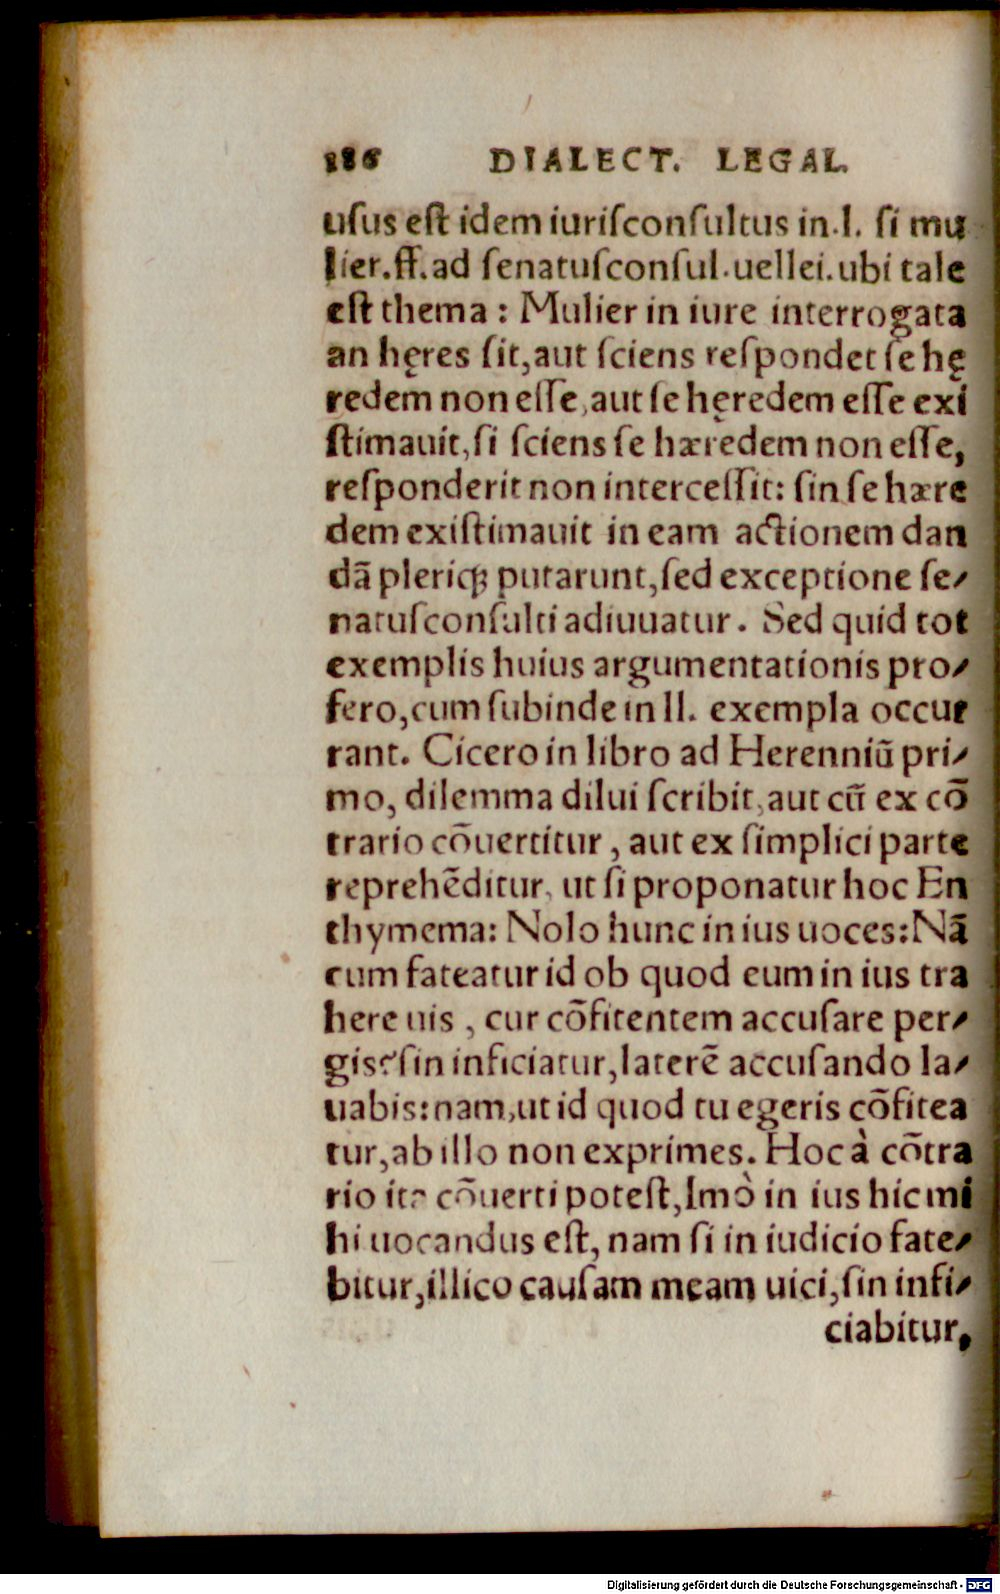 186 DIALECT. LEGAL.
usus est idem iurisconsultus in.l. si mu
lier.ff.ad senatusconsul.uellei.ubi tale
est thema : Mulier in iure interrogata
an hęres sit,aut sciens respondet se hę
redem non esse,aut se hęredem esse exi
stimauit,si sciens se hæredem non esse,
responderit non intercessit: sin se hære
dem existimauit in eam actionem dan
dā pleriqꝫ putarunt,sed exceptione se⸗
natusconsulti adiuuatur. Sed quid tot
exemplis huius argumentationis pro⸗
fero,cum subinde in ll. exempla occur
rant. Cicero in libro ad Herenniū pri⸗
mo, dilemma dilui scribit,aut cū ex cō
trario cōuertitur, aut ex simplici parte
reprehēditur, ut si proponatur hoc En
thymema: Nolo hunc in ius uoces:Nā
cum fateatur id ob quod eum in ius tra
here uis , cur cōfitentem accusare per⸗
gis?sin inficiatur,laterē accusando la⸗
uabis:nam,ut id quod tu egeris cōfitea
tur,ab illo non exprimes. Hoc à cōtra
rio ita cōuerti potest,Imò in ius hic mi
hi uocandus est, nam si in iudicio fate⸗
bitur,illico causam meam uici,sin infi⸗
ciabitur,
Digitalisierung gefördert durch die Deutsche Forschungsgemeinschaft - DFG